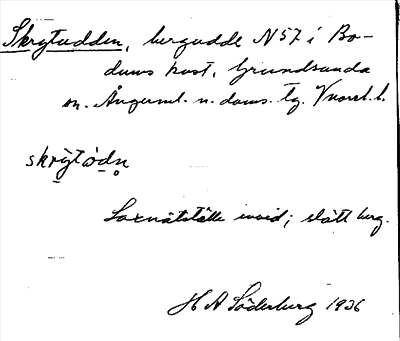 Skrytudden, bergudde N 57 i Bo-
dums kust, Grundsunda
sn. Ångerml. n. doms. tg. Vnorrl. l.
skrỳtòdn̥
Laxnätställe invid; slätt berg.
H A Söderberg 1936